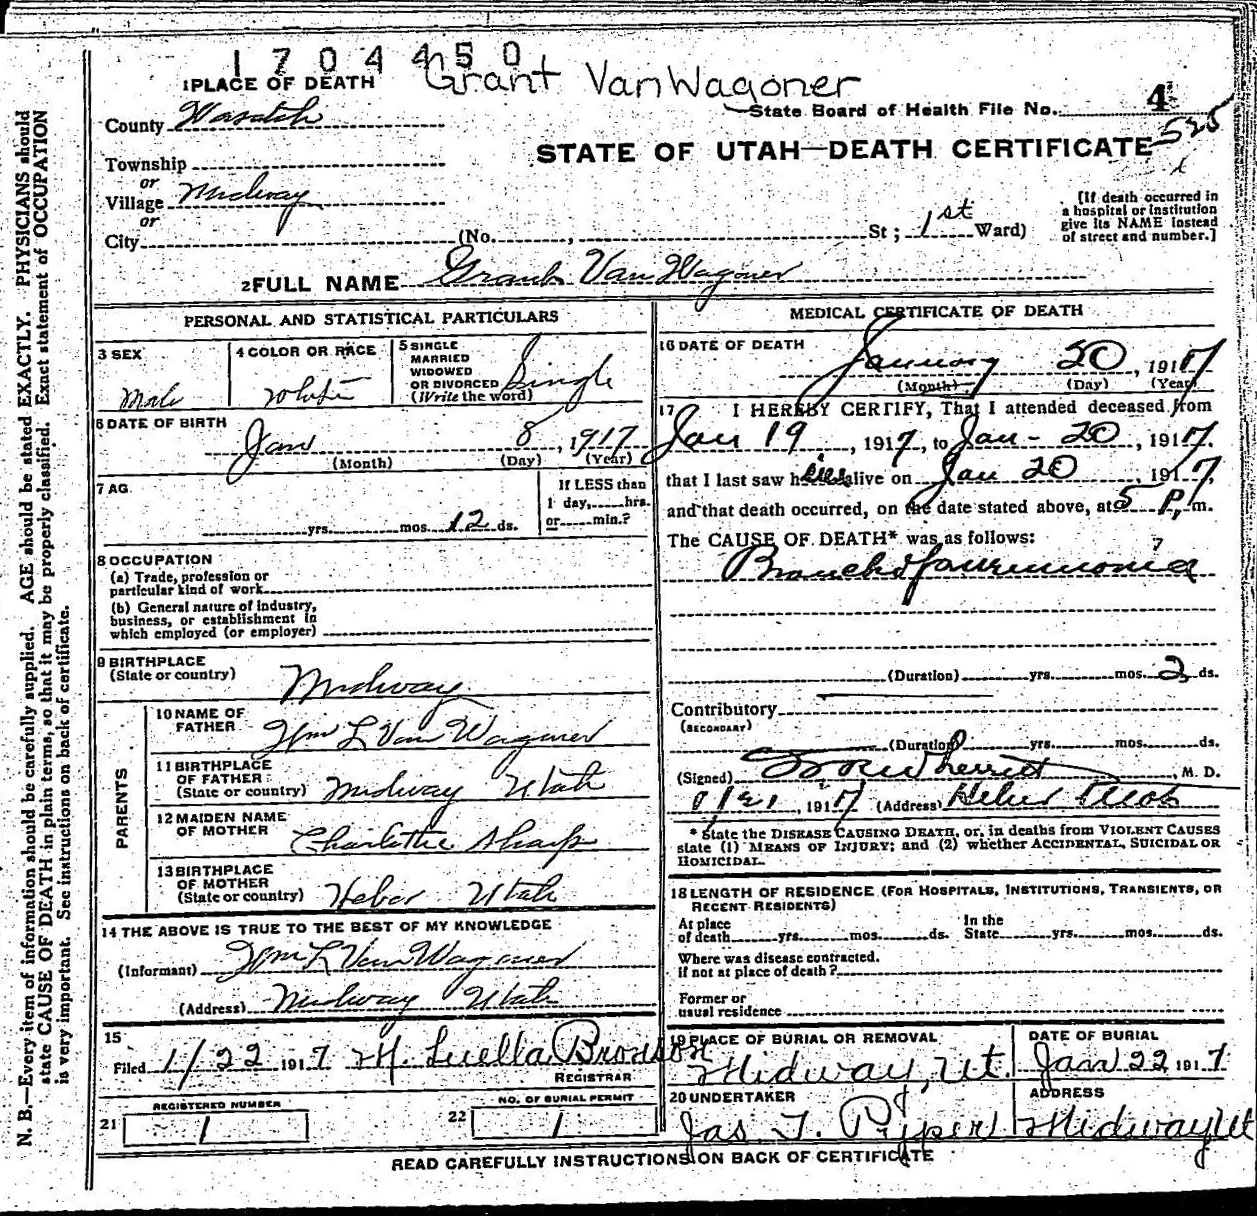 1704450
Grant VanWagoner
1 PLACE OF DEATH
State Board of Health File No. 4
525
County Wasatch
STATE OF UTAH—DEATH CERTIFICATE
Township
or
Village Midway
or
City (No. , St; 1st Ward)
[If death occurred in
a hospital or institution
give its NAME instead
of street and number.]
2 FULL NAME Grant Van Wagoner
PERSONAL AND STATISTICAL PARTICULARS
3 SEX
Male
4 COLOR OR RACE
White
5 SINGLE
MARRIED
WIDOWED
OR DIVORCED
(Write the word)
Single
6 DATE OF BIRTH
Jan 8, 1917
(Month) (Day) (Year)
7 AG
yrs. mos. 12 ds.
If LESS than
1 day, hrs.
or min.?
8 OCCUPATION
(a) Trade, profession or
particular kind of work
(b) General nature of industry,
business, or establishment in
which employed (or employer)
9 BIRTHPLACE
(State or country)
Midway
PARENTS
10 NAME OF
FATHER
Wm L Van Wagoner
11 BIRTHPLACE
OF FATHER
(State or country)
Midway Utah
12 MAIDEN NAME
OF MOTHER
Charlotte Sharp
13 BIRTHPLACE
OF MOTHER
(State or country)
Heber Utah
14 THE ABOVE IS TRUE TO THE BEST OF MY KNOWLEDGE
(Informant) Wm L Van Wagoner
(Address) Midway Utah
15
Filed 1/22 1917 M. Luella Bronson
REGISTRAR
REGISTERED NUMBER
21 1
NO. OF BURIAL PERMIT
22 1
MEDICAL CERTIFICATE OF DEATH
16 DATE OF DEATH
January 20, 1917
(Month) (Day) (Year)
17 I HEREBY CERTIFY, That I attended deceased from
Jan 19, 1917, to Jan - 20, 1917,
that I last saw him alive on Jan 20, 1917,
and that death occurred, on the date stated above, at 5 P, m.
The CAUSE OF DEATH* was as follows:
7
Broncho pneumonia
(Duration) yrs. mos. 2 ds.
Contributory
(SECONDARY)
(Duration) yrs. mos. ds.
(Signed) Wherritt, M. D.
1917 (Address) Heber Utah
* State the DISEASE CAUSING DEATH, or, in deaths from VIOLENT CAUSES
state (1) MEANS OF INJURY; and (2) whether ACCIDENTAL, SUICIDAL OR
HOMICIDAL.
18 LENGTH OF RESIDENCE (FOR HOSPITALS, INSTITUTIONS, TRANSIENTS, OR
RECENT RESIDENTS)
At place
of death yrs. mos. ds.
In the
State yrs. mos. ds.
Where was disease contracted,
if not at place of death?
Former or
usual residence
19 PLACE OF BURIAL OR REMOVAL
Midway, Ut.
DATE OF BURIAL
Jan 22 1917
20 UNDERTAKER
Jas. T. Pyper
ADDRESS
Midway Ut
READ CAREFULLY INSTRUCTIONS ON BACK OF CERTIFICATE
N. B.—Every item of information should be carefully supplied. AGE should be stated EXACTLY. PHYSICIANS should
state CAUSE OF DEATH in plain terms, so that it may be properly classified. Exact statement of OCCUPATION
is very important. See instructions on back of certificate.